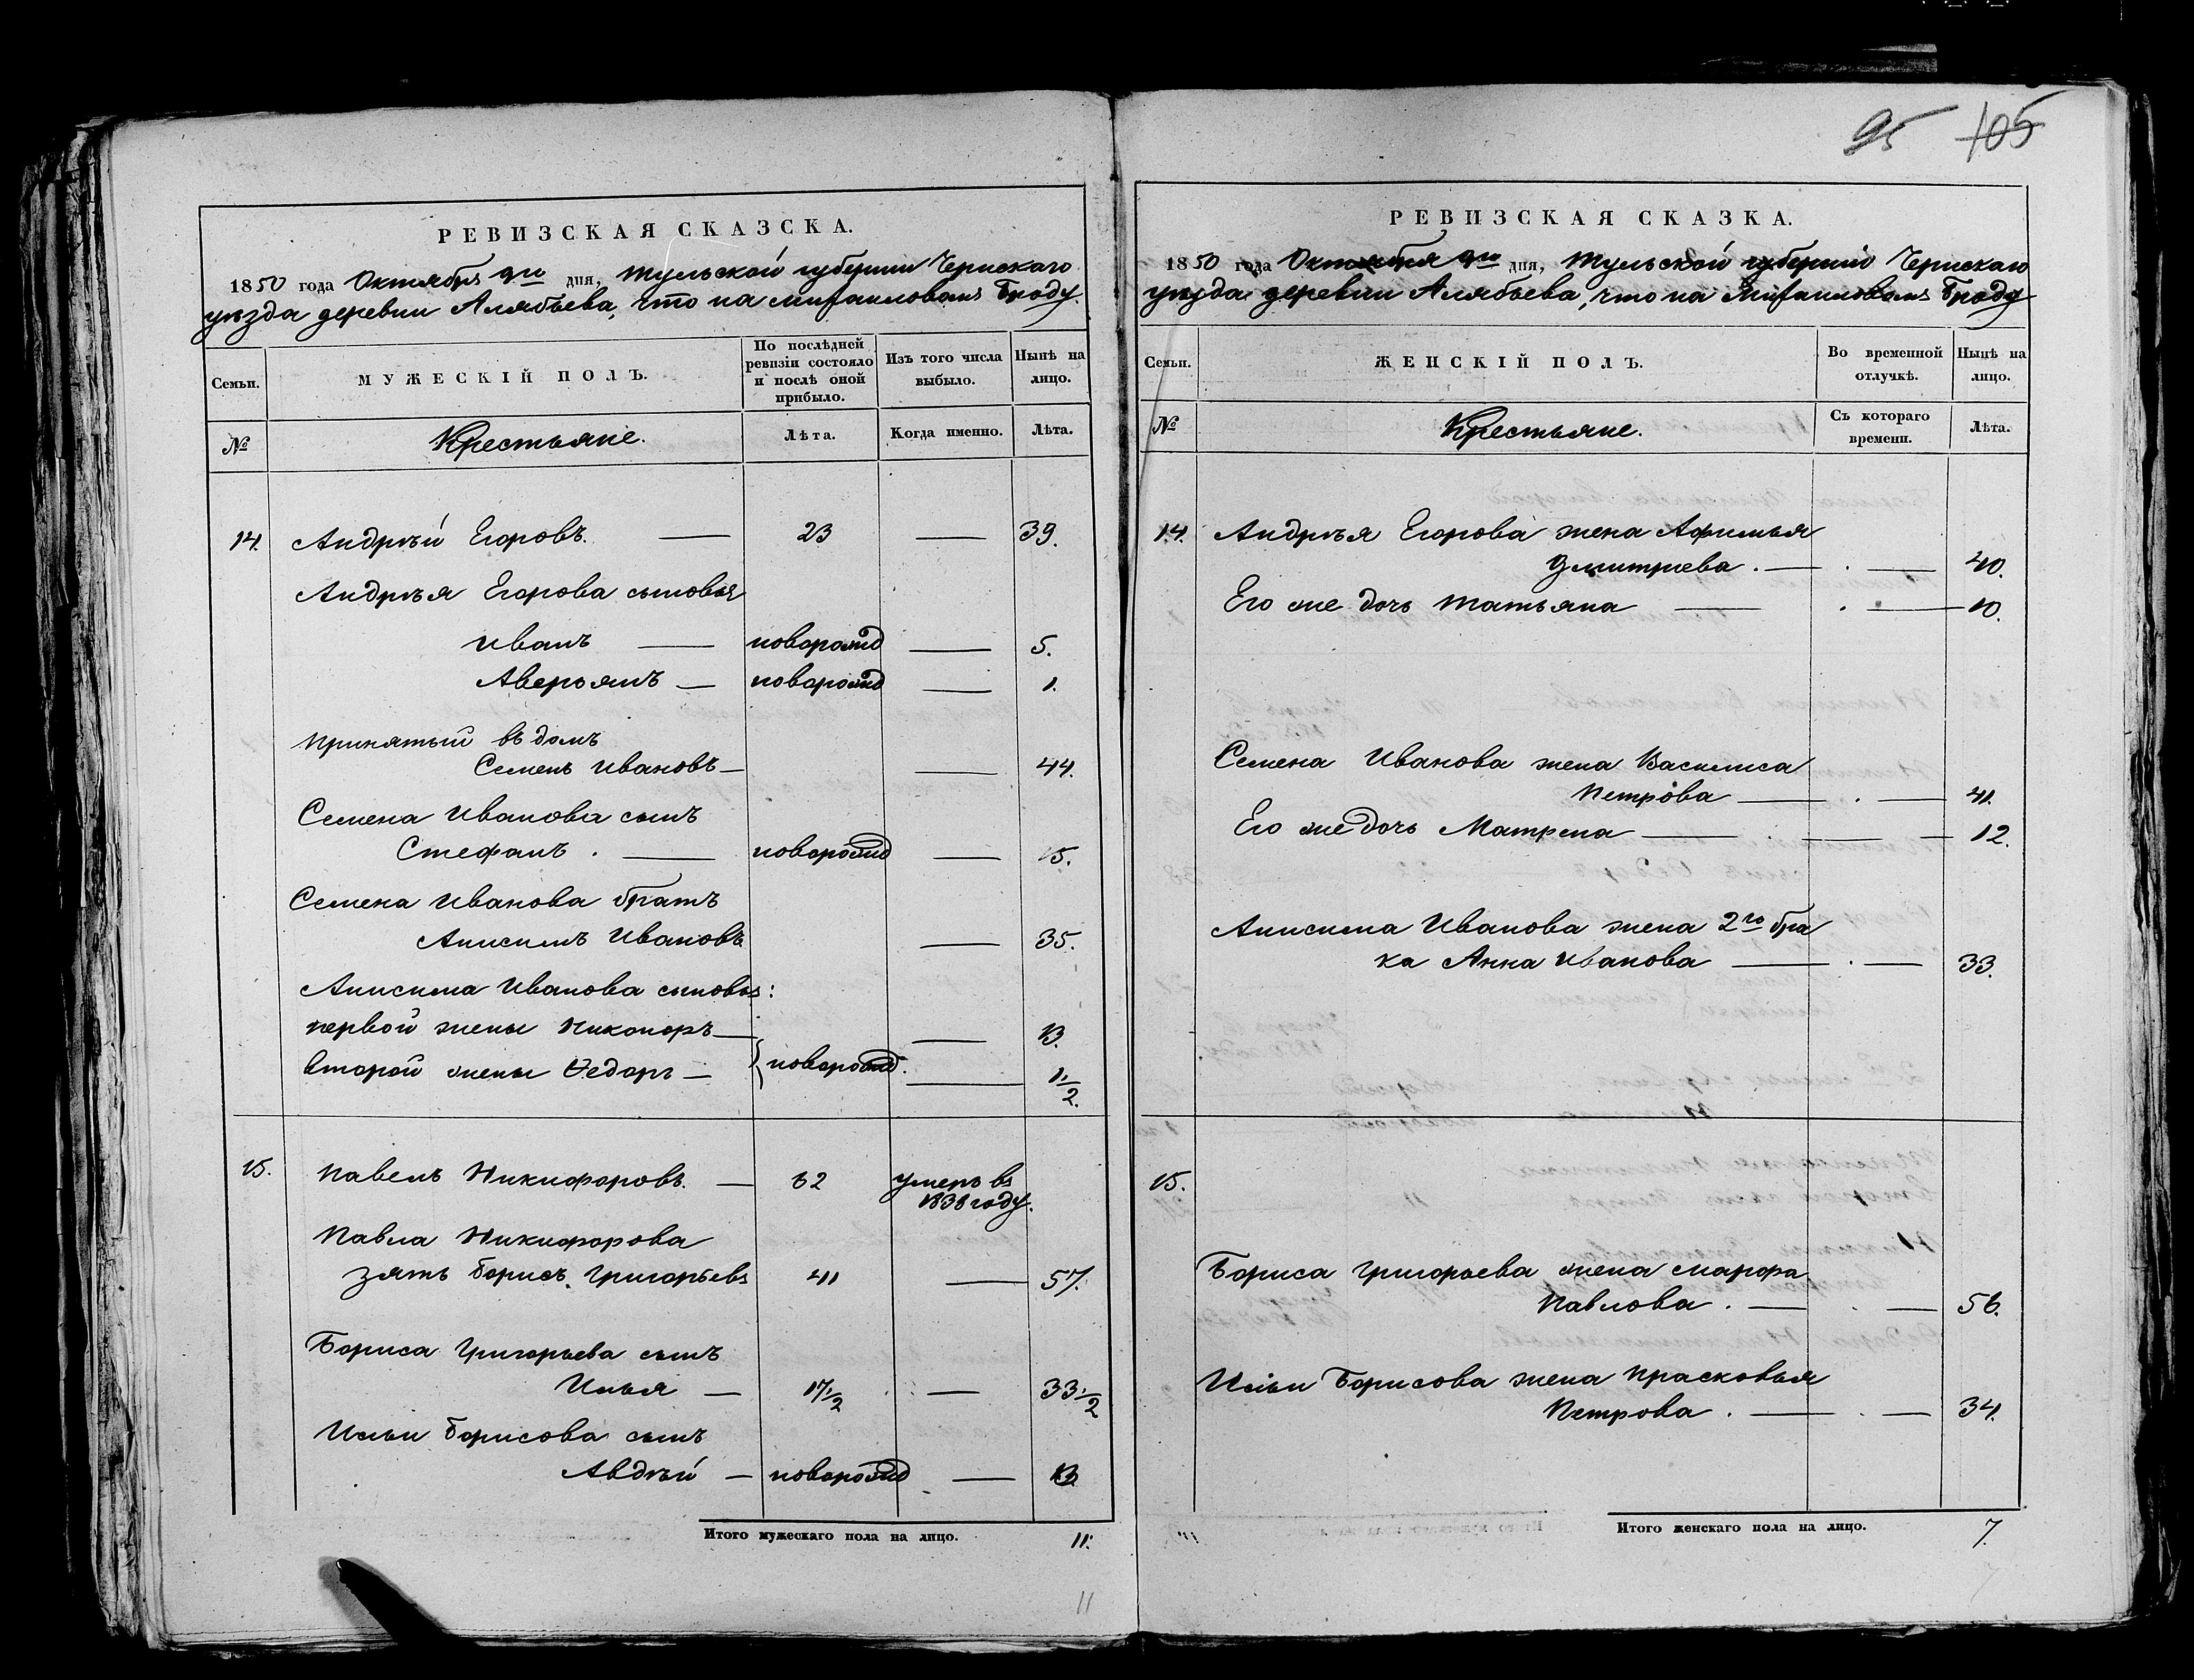 95 105
РЕВИЗСКАЯ СКАЗСКА.
1850 года Октября 9го дня, Тульской губернии Чернскаго
уѣзда деревни Алябьева, что на Михаиловомъ Броду.
Семьи.
МУЖЕСКІЙ ПОЛЪ.
По послѣдней
ревизіи состояло
и послѣ оной
прибыло.
Изъ того числа
выбыло.
Нынѣ на
лицо.
№
Крестьяне.
Лѣта.
Когда именно.
Лѣта.
14. Андрѣй Егоровъ. — 23 — 39.
Андрѣя Егорова сыновья
Иванъ — новорожд — 5.
Аверьянъ — новорожд — 1.
Принятый въ домъ
Семенъ Ивановъ — — 44.
Семена Иванова сынъ
Стефанъ . — новорожд — 15.
Семена Иванова братъ
Анисимъ Ивановъ — 35.
Анисима Иванова сыновья:
первой жены Никоноръ — — 13.
второй жены Ѳедоръ — } новорожд. — 1/2.
15. Павелъ Никифоровъ. — 62 умеръ въ
1838 году.
Павла Никифорова
зять Борисъ Григорьевъ 41 — 57.
Бориса Григорьева сынъ
Илья — 17 1/2 — 33 1/2
Ильи Борисова сынъ
Авдѣй — новорожд — 13
Итого мужескаго пола на лицо. 11.
11
РЕВИЗСКАЯ СКАЗКА.
1850 года Октября 9го дня, Тульской губерніи Чернскаго
уѣзда деревни Алябьева, что на Михаиловомъ Броду
Семьи.
ЖЕНСКІЙ ПОЛЪ.
Во временной
отлучкѣ.
Нынѣ на
лицо.
№
Крестьяне.
Съ котораго
времени.
Лѣта.
14. Андрѣя Егорова жена Афимья
Дмитриева . — . — 40.
Его же дочь Татьяна — . — 10.
Семена Иванова жена Василиса
Петрова — . — 41.
Его же дочь Матрена — . — 12.
Анисима Иванова жена 2го бра
ка Анна Иванова — . — 33.
15.
Бориса Григорьева жена Марфа
Павлова . — . — 56.
Ильи Борисова жена Прасковья
Петрова . — . — 34.
Итого женскаго пола на лицо. 7.